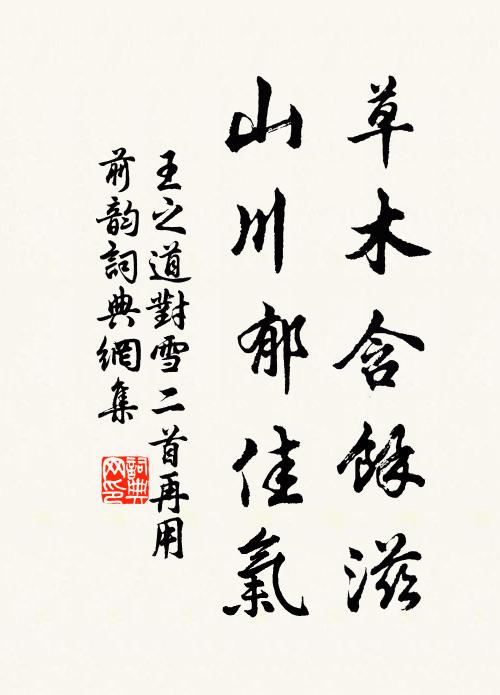 草木含餘滋
山川郁佳氣
王之道對雪二首再用
前韵詞典網集
詞典
网印